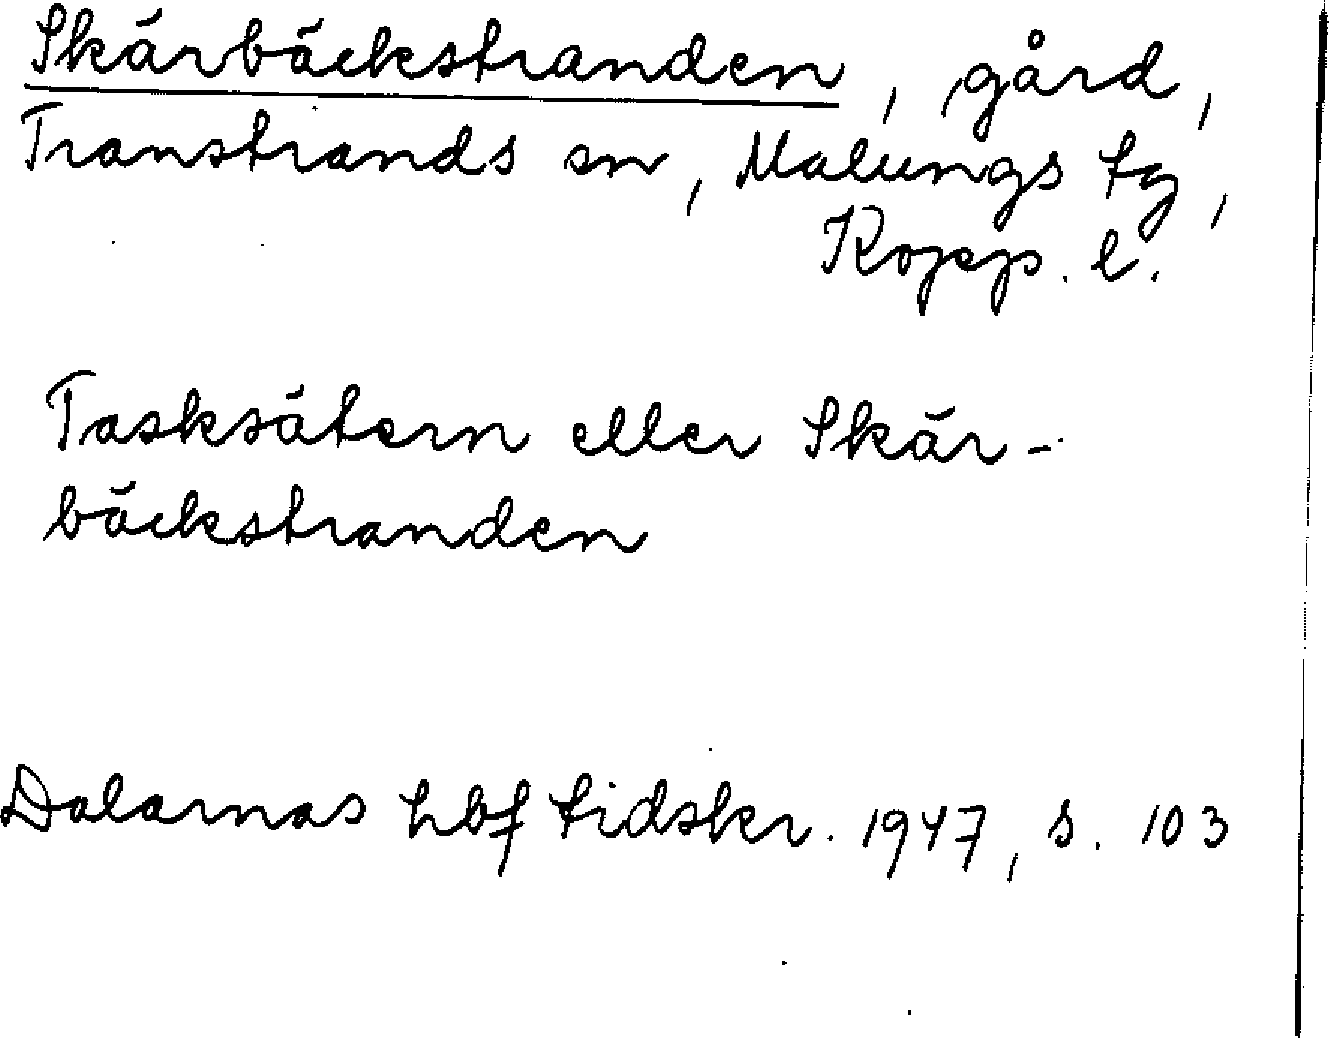 Skärbäckstranden, gård,
Transtrands sn, Malungs tg,
Kopp. l.
Tasksätern eller Skär-
bäckstranden
Dalarnas hbf tidskr. 1947, s. 103